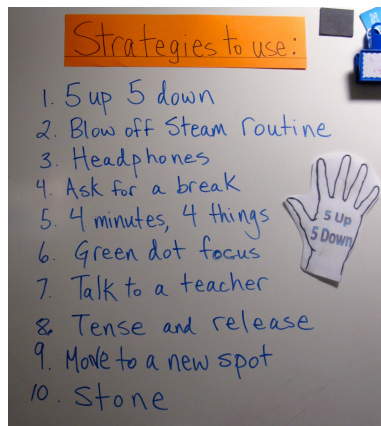 Strategies to use:
1. 5 up 5 down
2. Blow off Steam routine
3. Headphones
4. Ask for a break
5. 4 minutes, 4 things
6. Green dot focus
7. Talk to a teacher
8. Tense and release
9. Move to a new spot
10. Stone
5 Up
5 Down